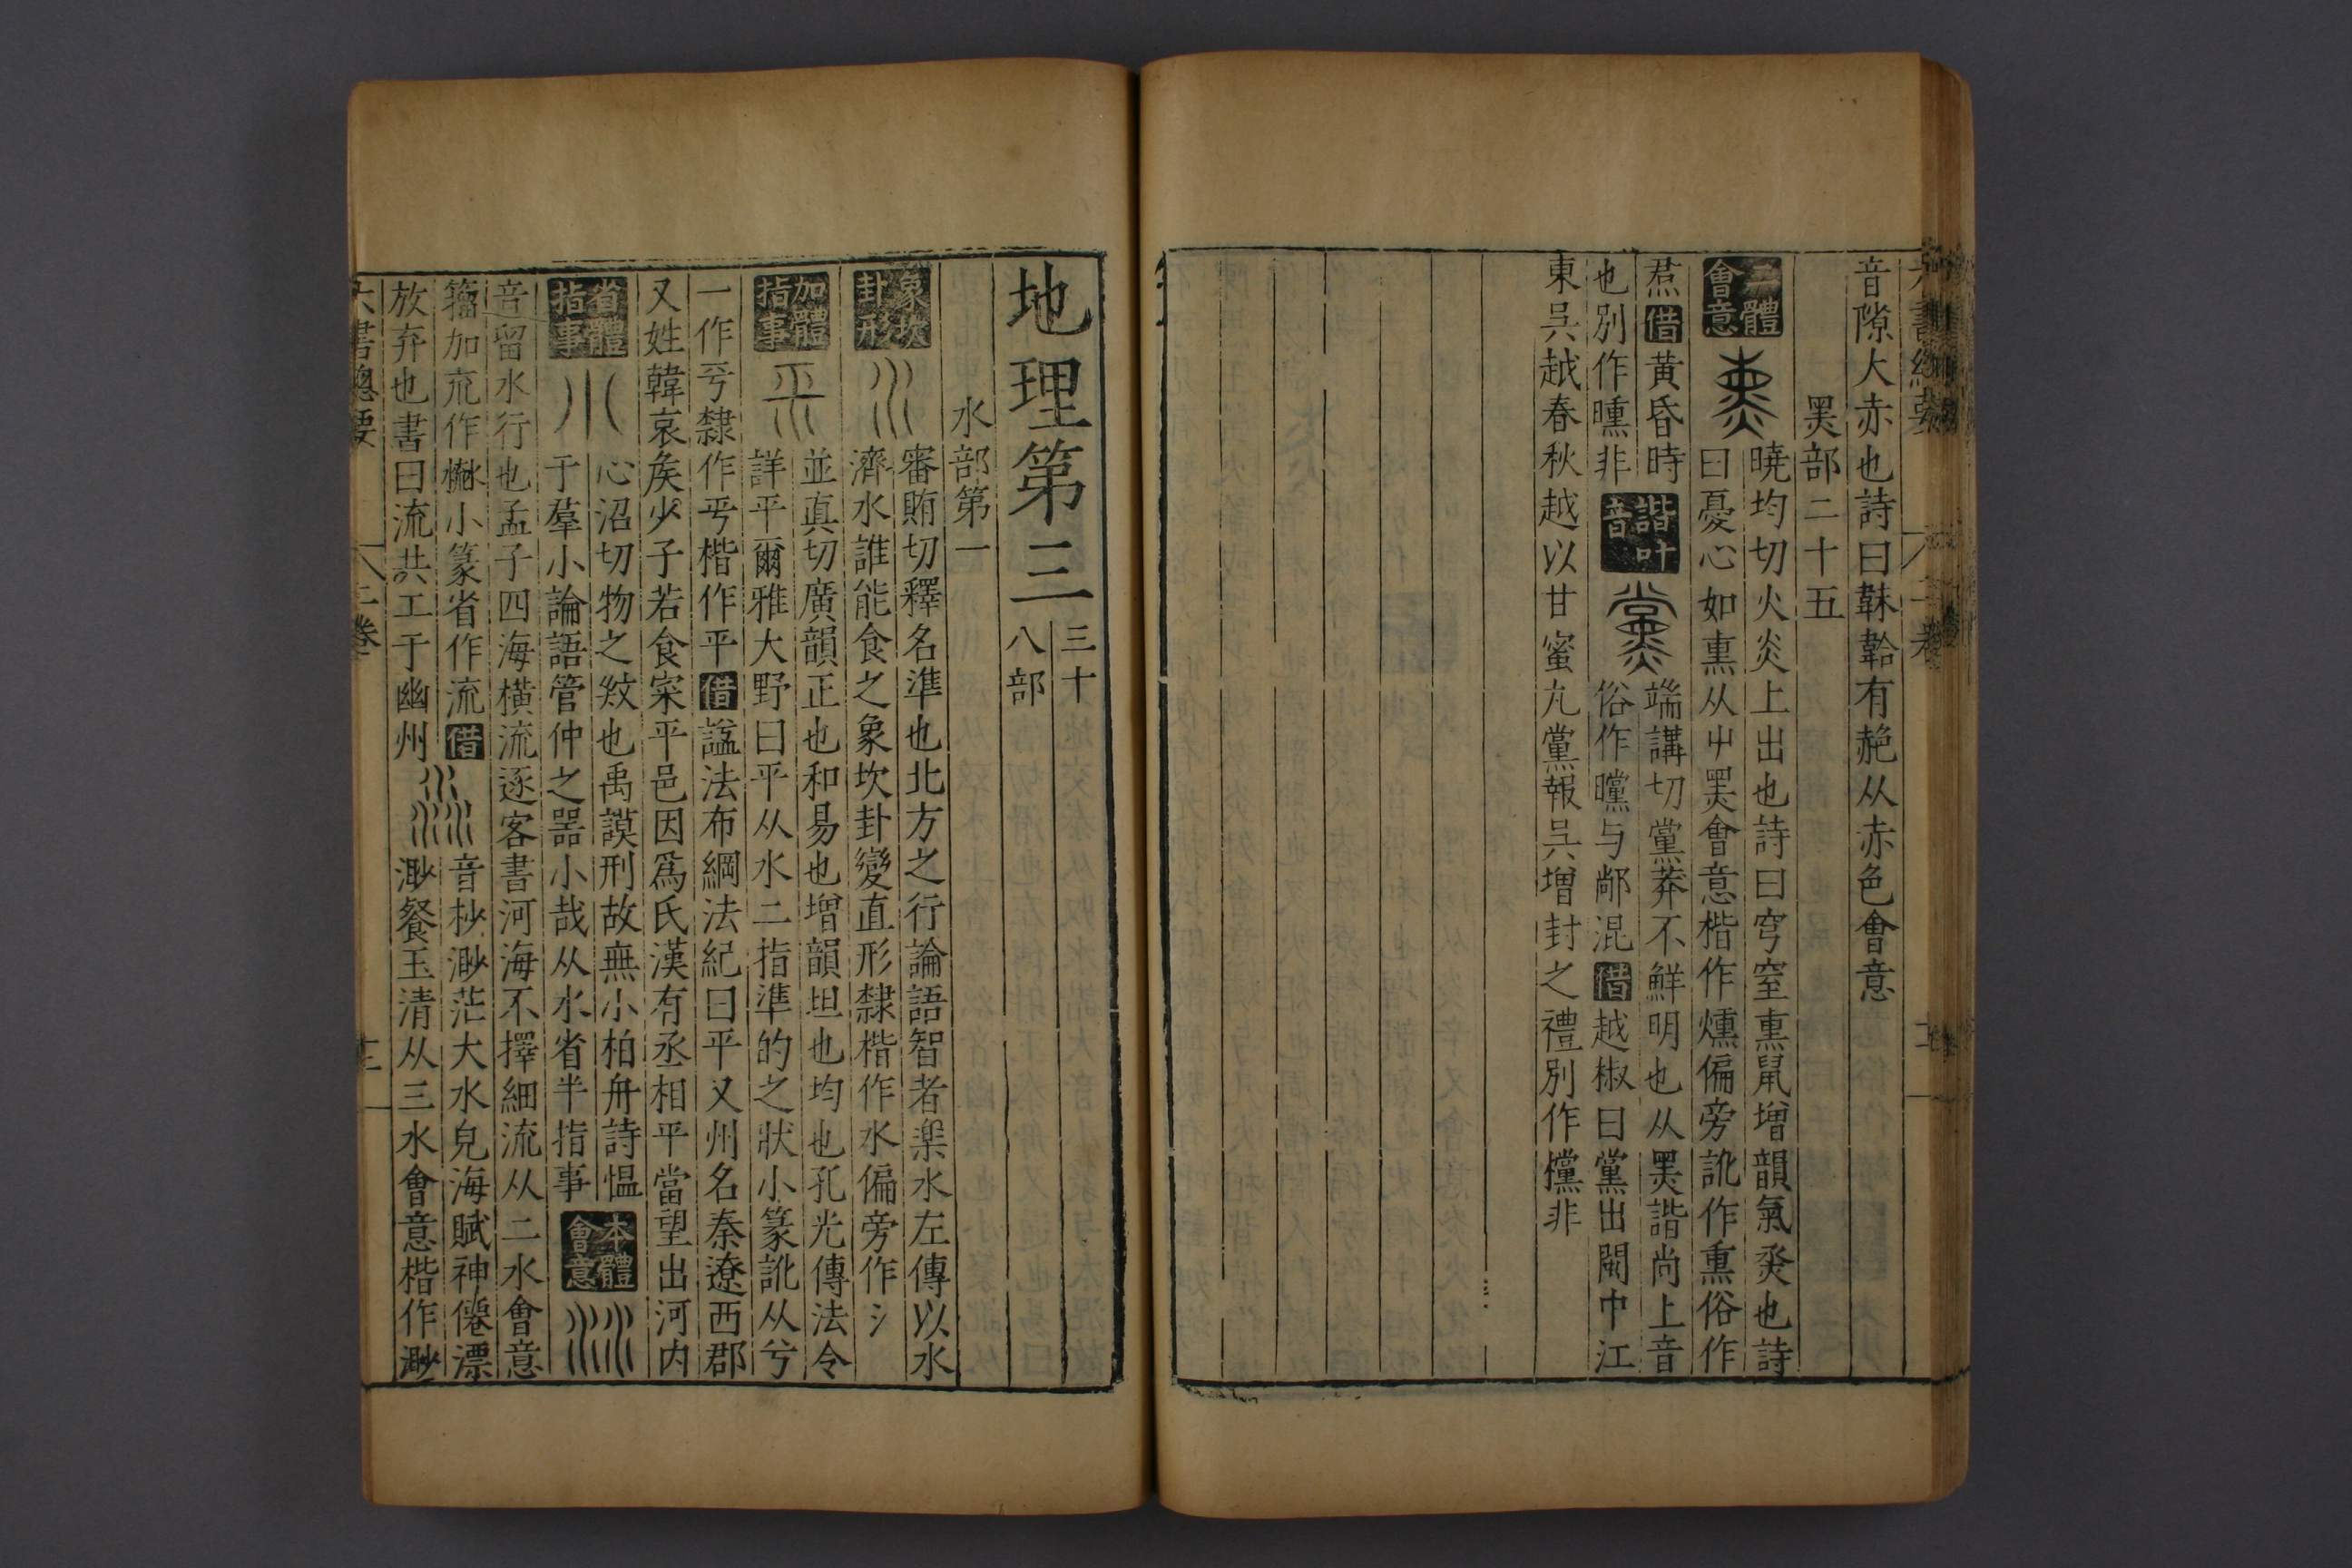 六書總要
音隙大赤也詩曰韎韐有赩从赤色會意
黑部二十五
二體會意
曉均切火炎上出也詩曰穹窒熏鼠增韻氣烝也詩
曰憂心如熏从屮黑會意楷作燻偏旁訛作熏俗作
焄借黃昏時諧叶音端講切黨莽不鮮明也从黑諧尚上音
也別作曛非俗作曭与鄗混借越椒曰黨出閩中江
東吳越春秋越以甘蜜九黨報吳增封之禮別作攩非
地理第三三十八部
水部第一
象坎卦形
審賄切釋名準也北方之行論語智者樂水左傳以水
濟水誰能食之象坎卦變直形隸楷作水偏旁作氵
加體指事
並真切廣韻正也和易也增韻坦也均也孔光傳法令
詳平爾雅大野曰平从水二指準的之狀小篆訛从兮
一作兮隸作平楷作平借諡法布綱法紀曰平又州名秦遼西郡
又姓韓哀矦少子若食寀平邑因爲氏漢有丞相平當望出河內
省體指事
心沼切物之㪇也禹謨刑故無小柏舟詩慍
于羣小論語管仲之器小哉从水省半指事
本體會意
音留水行也孟子四海橫流逐客書河海不擇細流从二水會意
籒加㐬作小篆省作流借音杪渺茫大水皃海賦神僊漂
放弃也書曰流共工于幽州渺餐玉清从三水會意楷作渺
六書總要
二卷